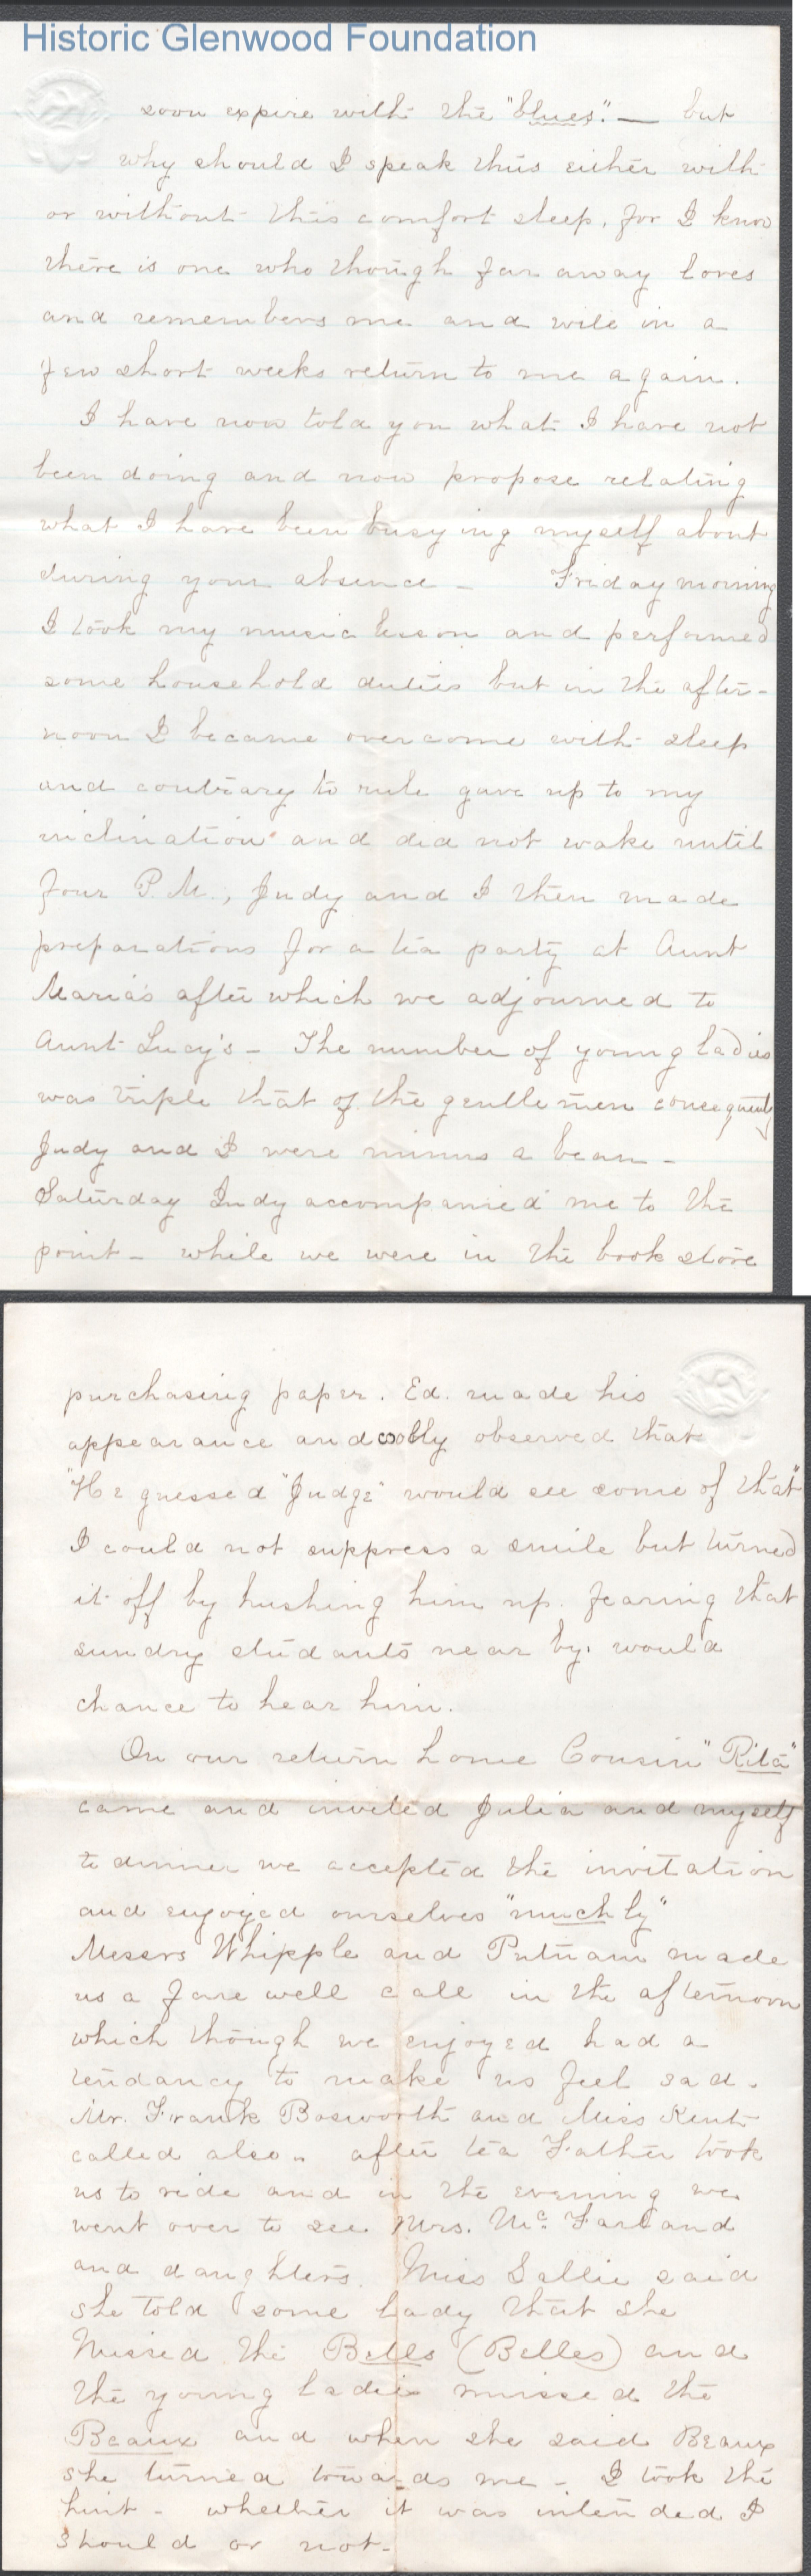 Historic Glenwood Foundation
soon expire with the "blues". — but
why should I speak thus either with
or without this comfort sleep, for I know
there is one who though far away loves
and remembers me and will in a
few short weeks return to me again.
I have now told you what I have not
been doing and now propose relating
what I have been busying myself about
during your absence – Friday morning
I took my music lesson and performed
some household duties but in the after-
noon I became overcome with sleep
and contrary to rule gave up to my
inclination and did not wake until
four P.M., Judy and I then made
preparations for a tea party at Aunt
Maria's after which we adjourned to
Aunt Lucy's – The number of young ladies
was triple that of the gentlemen consequently
Judy and I were minus a beau –
Saturday Judy accompanied me to the
point – while we were in the book store
purchasing paper. Ed. made his
appearance and coolly observed that
"He guessed "Judge" would see some of that"
I could not suppress a smile but turned
it off by hushing him up. fearing that
sundry studants near by, would
chance to hear him.
On our return home Cousin "Rita"
came and invited Julia and myself
to dinner we accepted the invitation
and enjoyed ourselves "muchly"
Messrs Whipple and Putnam made
us a farewell call in the afternoon
which though we enjoyed had a
tendancy to make us feel sad.
Mr. Frank Bosworth and Miss Kent
called also. after tea Father took
us to ride and in the evening we
went over to see Mrs. McFarland
and daughters. Miss Sallie said
she told some lady that she
missed the Bells (Belles) and
the young ladies missed the
Beaux and when she said Beaux
she turned towards me – I took the
hint – whether it was intended I
should or not –